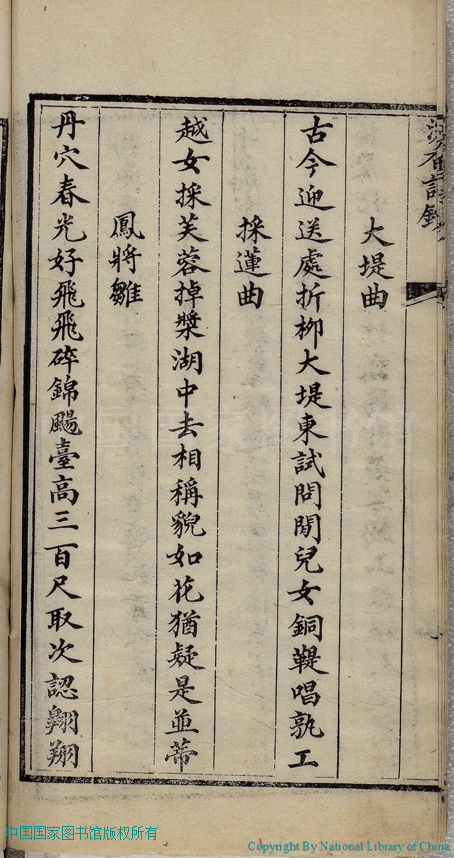 大堤曲
古今迎送處折柳大堤東試問閒兒女銅鞮唱孰工
採蓮曲
越女採芙蓉掉槳湖中去相稱貌如花猶疑是並蒂
鳳將雛
丹穴春光好飛飛碎錦颺臺高三百尺取次認翱翔
中国国家图书馆版权所有
Copyright By National Library of China